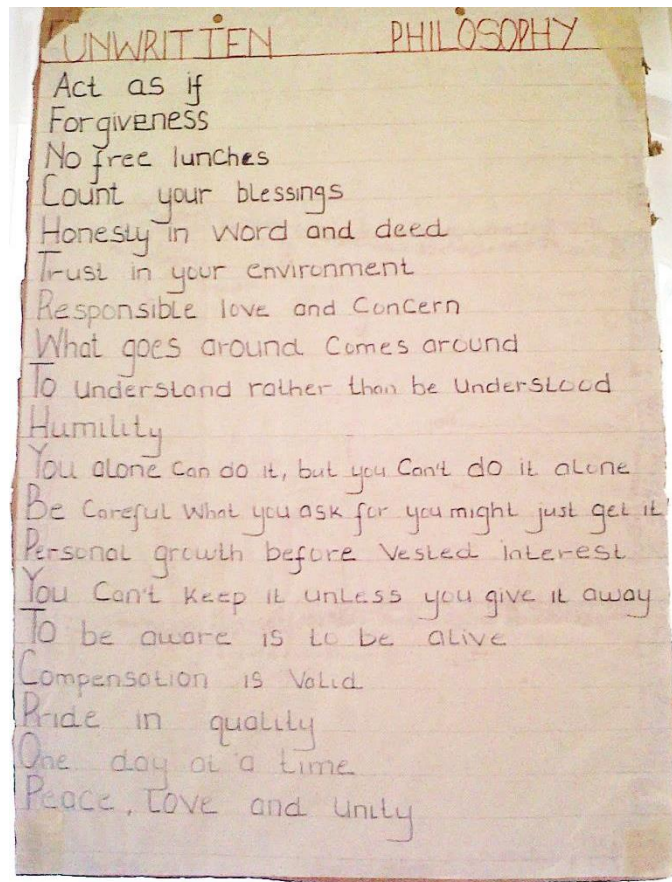 UNWRITTEN PHILOSOPHY
Act as if
Forgiveness
No free lunches
Count your blessings
Honesty in Word and deed
Trust in your environment
Responsible love and Concern
What goes around Comes around
To Understand rather than be Understood
Humility
You alone Can do it, but you Can't do it alone
Be Careful What you ask for you might just get it
Personal growth before Vested interest
You Can't Keep it unless you give it away
To be aware is to be alive
Compensation is Valid
Pride in quality
One day at a time
Peace, Love and Unity